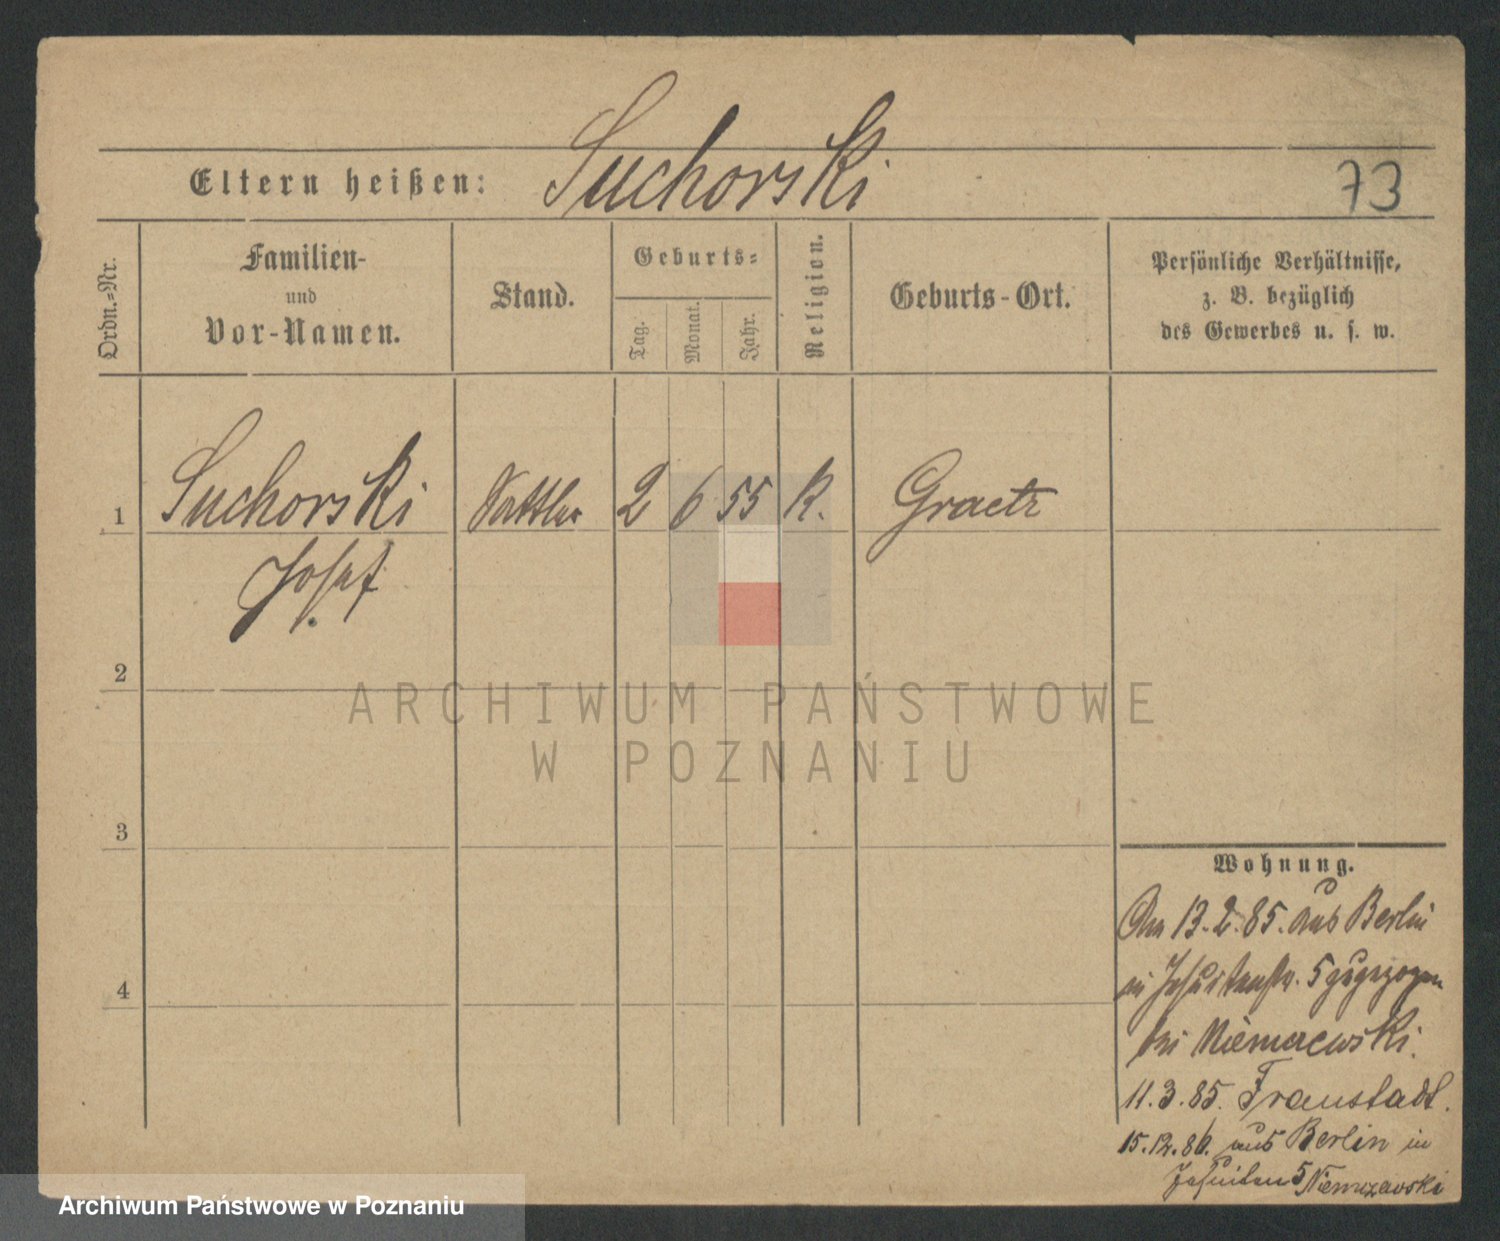 Suchorski
Eltern heißen:
73
Ordn.=Nr.
Familien-
und
Vor-Namen.
Stand.
Geburts=
Tag.
Monat.
Jahr.
Religion.
Geburts-Ort.
Persönliche Verhältnisse,
z. B. bezüglich
des Gewerbes u. s. w.
1 Suchorski Sattler 2 6 55 K. Graetz
Josef
2
ARCHIWUM PAŃSTWOWE
W POZNANIU
3
4
Wohnung.
13.2.85. aus Berlin
in Jesuitenstr. 5 zugezogen
bei
11.3.85. Fraustadt.
15.12.86. aus Berlin in
Jesuiten 5
Archiwum Państwowe w Poznaniu